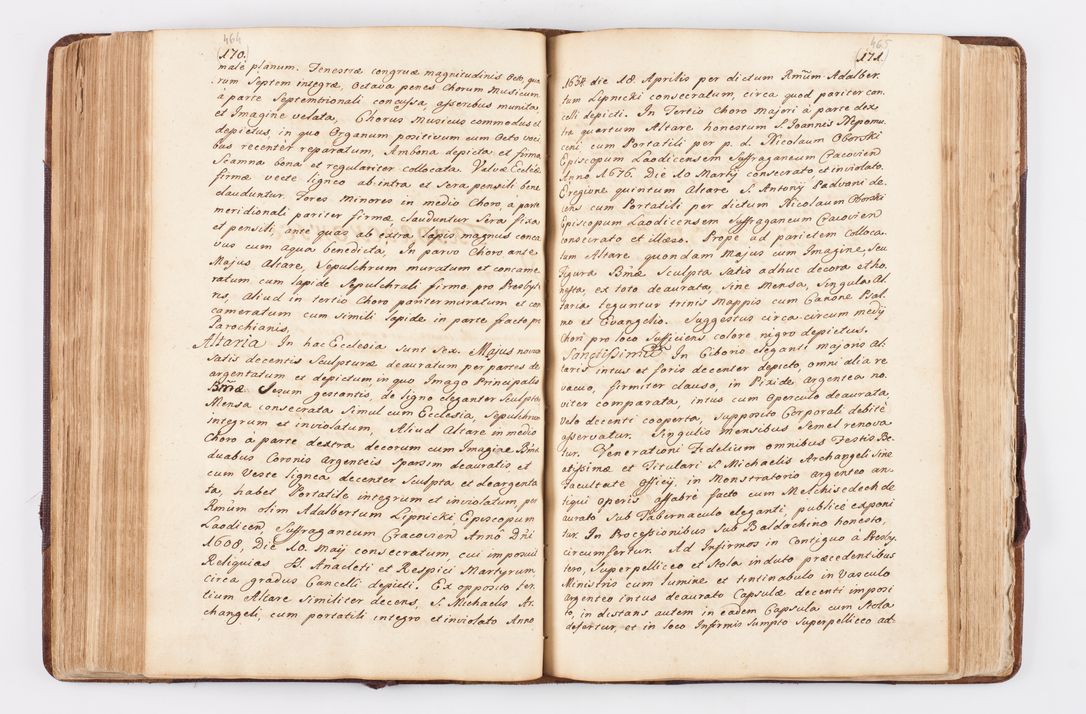 464
(170.)
male planum. Fenestræ congruæ magnitudinis Octo, qua
rum Septem integræ, Octava penes Chorum Musicum
à parte Septemtrionali concussa, asseribus munita
et Imagine velata, Chorus Musicus commodus et
depictus, in quo Organum positivum cum Octo voci
bus recenter reparatum, Ambona depicta et firma
Scamna bona et regulariter collocata. Valvæ Ecclæ
firmæ vecte ligneo ab intra et Sera pensili bene
clauduntur. Fores Minores in medio Choro, a parte
meridionali pariter firmæ clauduntur Sera fixa
et pensili, ante quas ab extra Lapis magnus conca
vus cum aqua benedicta, In parvo Choro ante
Majus Altare, Sepulchrum muratum et concame
ratum cum lapide Sepulchrali firmo pro Presbyte
ris, Aliud in tertio Choro pariter muratum et con
cameratum cum simili lapide in parte fracto pro
Parochianis.
Altaria In hac Ecclesia sunt Sex. Majus novum
Satis decentis Sculpturæ deauratum per partes de
argentatum et depictum in quo Imago Principalis
Bmæ Jesum gestantis, de ligno eleganter Sculpta
Mensa consecrata Simul cum Ecclesia, Sepulchrum
integrum et inviolatum, Aliud Altare in medio
Choro a parte dextra decorum cum Imagine Bmæ
duabus Coronis Argenteis Sparsim deauratis et
cum Veste lignea decenter Sculpta et deargenta
ta, habet Portatile integrum et inviolatum, per
Rmum olim Adalbertum Lipnicki Episcopum
Laodicen Suffraganeum Cracovien Anno Dni
1608, Die 10. Maij consecratum, cui imposuit
Reliquias SS. Anacleti et Respici Martyrum,
circa gradus Cancelli depicti. Ex opposito ter
tium Altare Similiter decens, S. Michaelis Ar
changeli, cum portatili integro et inviolato Anno
465
(171.)
die 18 Aprilis per dictum Rmum Adalber
tum Lipnicki consecratum, circa quod pariter can
celli depicti. In Tertio Choro majori à parte dex
tra quartum Altare honestum S. Ioannis Nepomu
ceni cum Portatili per p. d. Nicolaum Oborski
Episcopum Laodicensem Suffraganeum Cracovien
Anno 1676. Die 10 Martij consecrato et inviolato.
E regione quintum Altare S. Antonij Padvani de
cens cum Portatili per dictum Nicolaum Oborski
Episcopum Laodicensem Suffraganeum Cracovien
consecrato et illæso. Prope ad parietem colloca
tum Altare quondam Majus cum Imagine, seu
Figura Bmæ Sculpta Satis adhuc decora et ho
nesta, ex toto deaurata, Sine Mensa, Singula Al
taria teguntur trinis Mappis cum Canone Psal
mo et Evangelio. Suggestus circa circum medij
Chori pro loco Sufficiens colore nigro depictus.
Sanctissimum In Ciborio eleganti majoris Al
taris intus et foris decenter depicto, omni alia re
vacuo, firmiter clauso, in Pixide argentea no
viter comparata, intus cum Operculo deaurata,
Velo decenti cooperta, supposito Corporali debitè
asservatur. Singulis mensibus Semel renova
tur. Venerationi Fidelium omnibus Festis Be
atissimæ et Titulari S. Michaelis Archangeli Sine
Facultate Officij, in Monstratorio argenteo an
tiqui operis affabrè facto cum Melchisedech de
aurato Sub Tabernaculo eleganti, publicè exponi
tur. In Processionibus Sub Baldachino honesto,
circumfertur. Ad Infirmos in Contiguo à Presby
tero, Superpelliceo et Stola induto præcedentibus
Ministris cum Lumine et tintinabulo in Vasculo
Argenteo intus deaurato Capsulæ decenti imposi
to, in distans autem in eadem Capsula cum Stola
defertur, et in loco Infirmis Sumpto Superpelliceo ad-